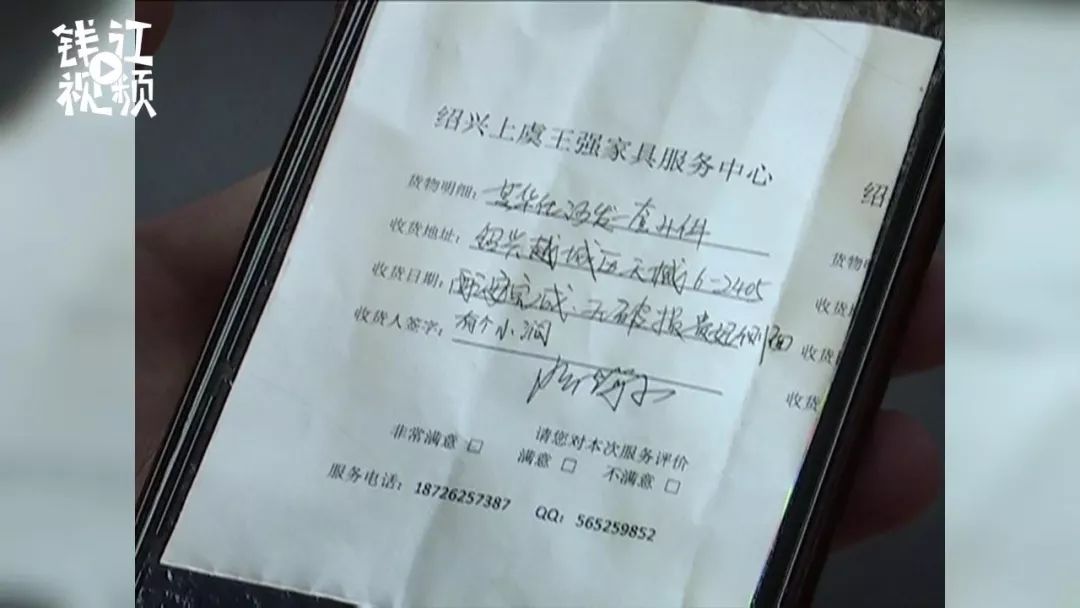 钱江
视频
绍兴上虞王强家具服务中心
货物明细：芝华仕沙发一套4件
收货地址：绍兴越城区天樾6-2405
收货日期：配送完成、无破损 贵妃侧面
收货人签字：有个小洞
请您对本次服务评价
非常满意□ 满意□ 不满意□
服务电话：18726257387 QQ：565259852
绍
货物明
收货地
收货日
收货